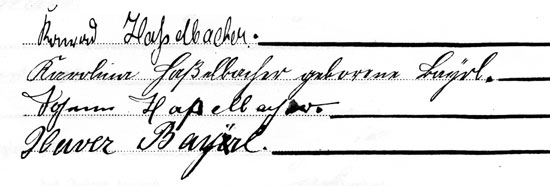 Konrad Haßelbacher.
Karolina Haßelbacher geborene Bayrl.
Johann Haßelbacher.
Xaver Bayrl.